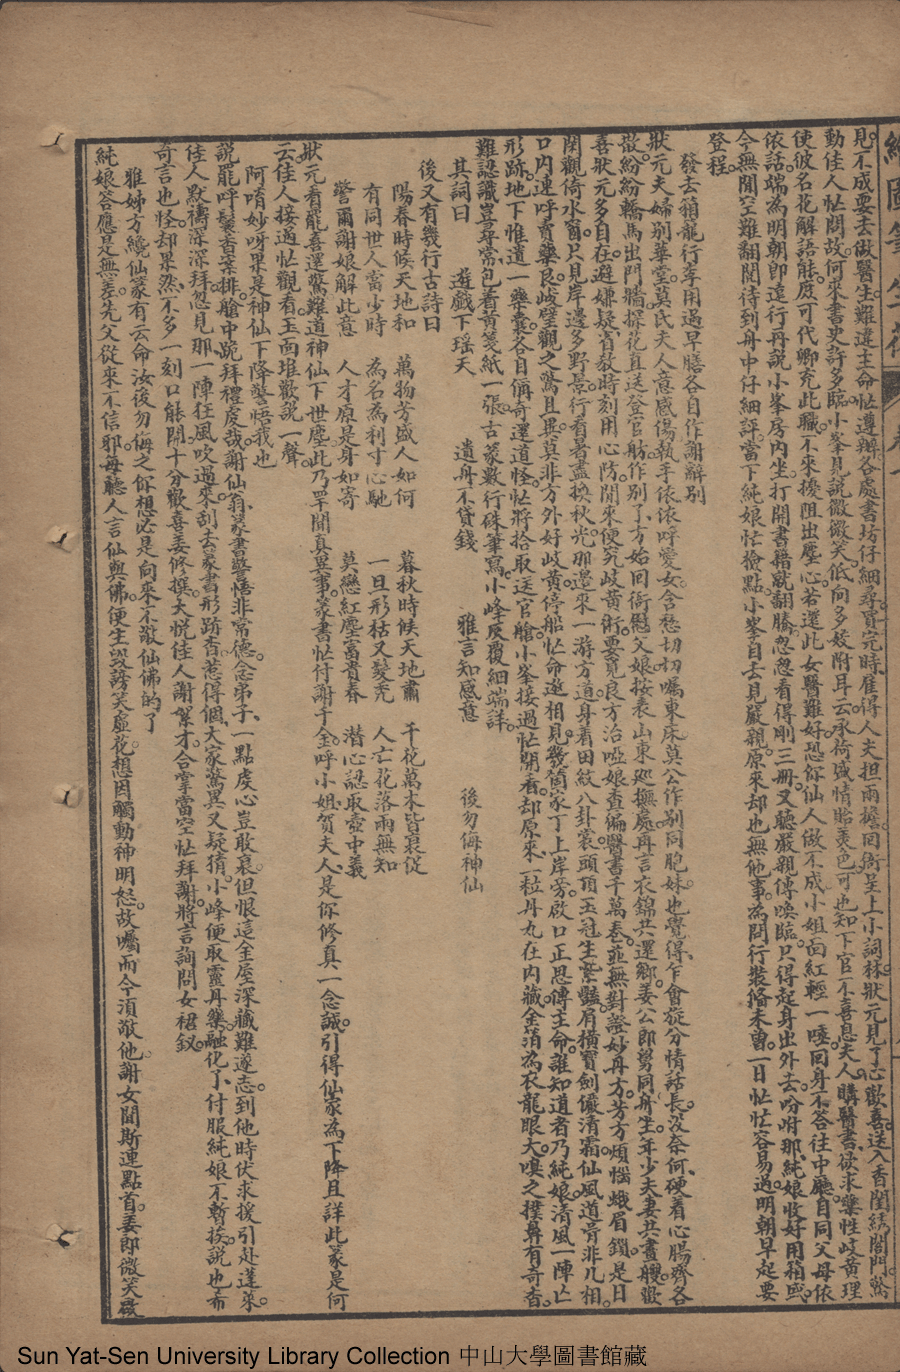 繪圖筆生花
見不成要去做醫生難違主命忙遵辦各處書坊仔細尋買完時雇得人夫担兩擔回衙呈上小詞林狀元見了心歡喜送入香閨綉閣門驚
動佳人忙問故何來書史許多臨小峯見說微微笑低向多姣附耳云承荷盛情貽羨色可也知下官不喜息夫人購醫書欲求藥性岐黃理
使彼名花解語能庶可代卿充此職不來擾阻出塵心若還此女醫難好恐你仙人做不成小姐面紅輕一唾回身不答往中廳自同父母依
依話端為明朝即遠行再說小峯房內坐打開書籍就翻騰怱怱看得剛三冊又聽嚴親傳喚臨只得起身出外去吩咐那純娘收好用箱盛
今無閒空難翻閱待到舟中仔細評當下純娘忙檢點小峯自去見嚴親原來却也無他事為問行裝俻未曾一日忙忙容易過明朝早起要
登程
發去箱籠行李用過早膳各自作謝辭別
狀元夫婦別華堂莫氏夫人意感傷執手依依呼愛女含愁切切囑東床莫公作別同胞妹也覺得乍會旋分情話長沒奈何硬着心腸齊各
散紛紛轎馬出門牆探花直送登官舫作別了方始回衙慰父娘按表山東廵撫處再言衣錦共還鄉姜公郎舅同舟坐年少夫妻共畫艭歡
喜狀元多自在避嫌疑省教時刻用心防閒來便究岐黃術要覓良方治啞娘查徧醫書千萬卷並無對證妙丹方芳方煩惱蛾眉鎖是日
閑觀倚水窗只見岸邊多野景行看署盡換秋光那邊來一游方道身着田紋八卦裳頭頂玉冠生紫豔肩橫寶劍儼清霜仙風道骨非凡相
口內連呼賣藥良峻璧觀之驚且異莫非方外好岐黃停船忙命邀相見幾箇家丁上岸旁啟口正思傳主命誰知道者乃純娘清風一陣亡
形跡地下惟遺一藥囊各自稱奇還道怪忙將拾取送官艙小峯接過忙開看却原來一粒丹丸在內藏金箔為衣龍眼大嗅之撲鼻有奇香
難認識豈尋常包着黃箋紙一張古篆數行硃筆寫小峰反覆細端詳
其詞曰　遊戲下瑶天　遺舟不貸錢　雅言知感意　後勿侮神仙
後又有幾行古詩曰
陽春時候天地和　萬物芳盛人如何　暮秋時候天地肅　千花萬木皆衰從
有同世人當少時　為名為利寸心馳　一旦形枯又髮禿　人亡花落兩無知
警爾謝娘解此意　人才原是身如寄　莫戀紅塵富貴春　潛心認取壺中義
狀元看罷喜還驚難道神仙下世塵此乃罕聞真異事篆書忙付謝千金呼小姐賀夫人是你修真一念誠引得仙家為下降且詳此篆是何
云佳人接過忙觀看玉面堆歡說一聲
阿唷妙呀果是神仙下降警悟我也
說罷呼鬟香案排艙中跪拜禮虔哉謝仙翁篆書警悟非常德念弟子一點虔心豈敢衰但恨這金屋深藏難遂志到他時伏求援引赴蓬萊
佳人默禱深深拜忽見那一陣狂風吹過來刮去篆書形跡杳惹得個大家驚異又疑猜小峰便取靈丹藥融化了付服純娘不暫挨說也希
奇言也怪却果然不多一刻口能開十分歡喜姜修撰大悅佳人謝絮才合掌當空忙拜謝將言詢問女裙釵
雅姊方纔仙篆有云命汝後勿侮之你想必是向來不敬仙佛的了
純娘答應是無差先父從來不信邪每聽人言仙與佛便生毀謗笑虛花想因觸動神明怒故囑而今須敬他謝女聞斯連點首姜郎微笑啟
Sun Yat-Sen University Library Collection 中山大學圖書館藏